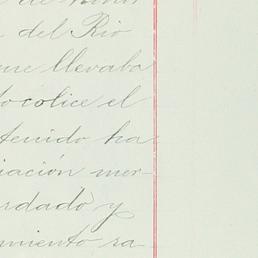 de
del Rio
que llevaba
tocolice el
tenido ha
iación mer-
rdado y
amiento ra-